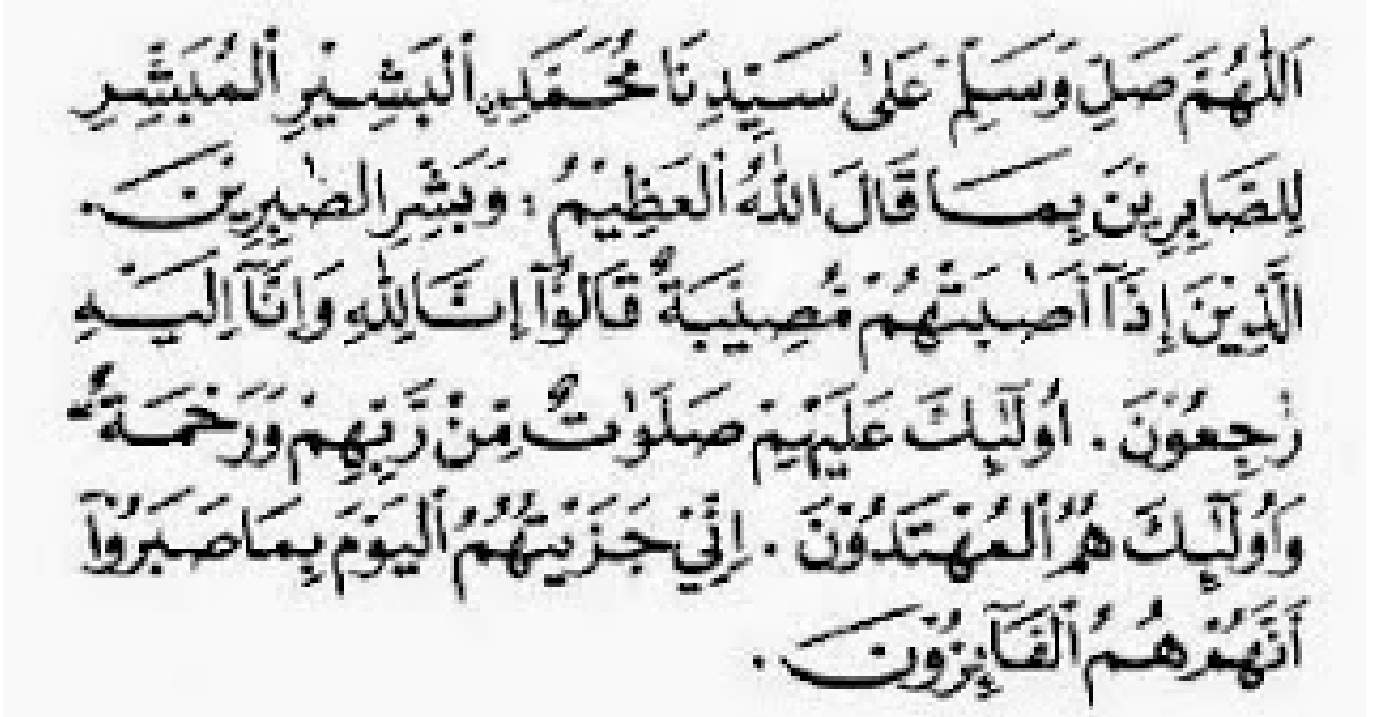 اَللّٰهُمَّ صَلِّ وَسَلِّمْ عَلٰى سَيِّدِنَا مُحَمَّدِ ۨالْبَشِيْرِ الْمُبَشِّرِ
لِلصَّابِرِيْنَ بِمَا قَالَ اللّٰهُ الْعَظِيْمُ : وَبَشِّرِ الصّٰبِرِيْنَ.
الَّذِيْنَ إِذَآ أَصٰبَتْهُمْ مُّصِيْبَةٌ قَالُوْٓا إِنَّا لِلّٰهِ وَإِنَّآ اِلَيْهِ
رٰجِعُوْنَ . اُولٰٓئِكَ عَلَيْهِمْ صَلَوٰتٌ مِّنْ رَّبِّهِمْ وَرَحْمَةٌ
وَاُولٰٓئِكَ هُمُ الْمُهْتَدُوْنَ . اِنِّيْ جَزَيْتُهُمُ الْيَوْمَ بِمَا صَبَرُوْٓا
أَنَّهُمْ هُمُ الْفَآئِزُوْنَ .